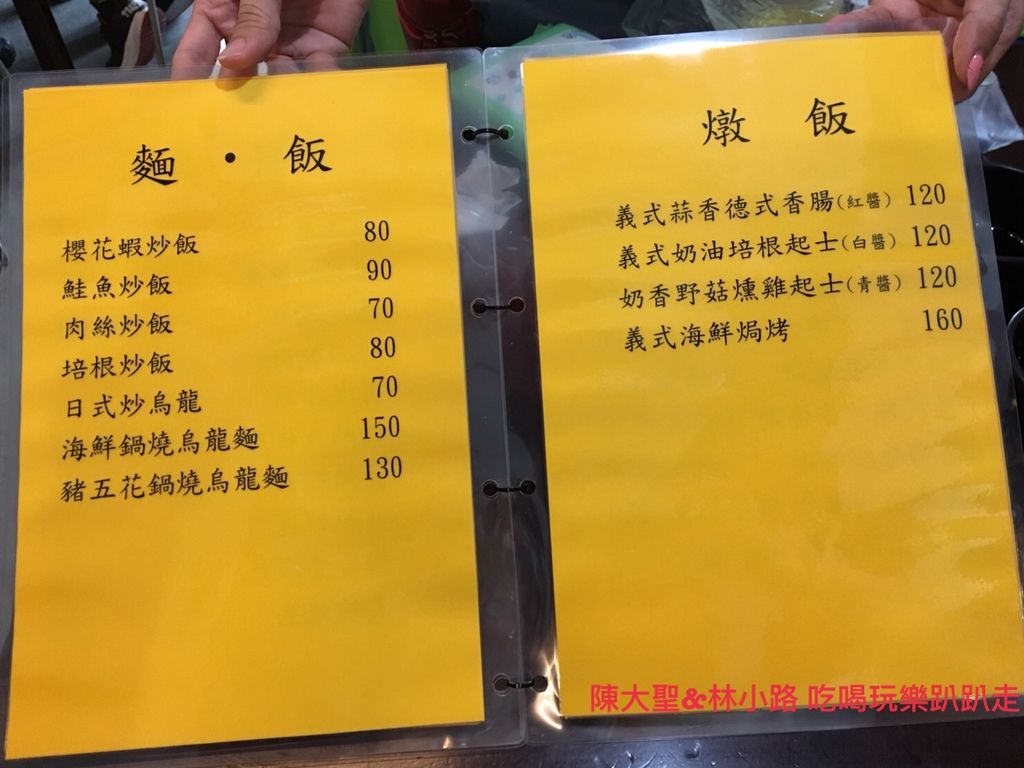 麵・飯
櫻花蝦炒飯 80
鮭魚炒飯 90
肉絲炒飯 70
培根炒飯 80
日式炒烏龍 70
海鮮鍋燒烏龍麵 150
豬五花鍋燒烏龍麵 130
燉 飯
義式蒜香德式香腸(紅醬) 120
義式奶油培根起士(白醬) 120
奶香野菇燻雞起士(青醬) 120
義式海鮮焗烤 160
陳大聖&林小路 吃喝玩樂趴趴走